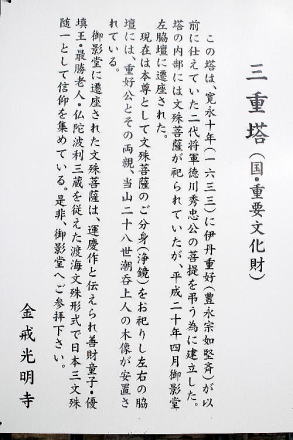 三重塔（国・重要文化財）
この塔は、寛永十年（一六三三）に伊丹重好（豊永宗如堅斉）が以
前に仕えていた二代将軍徳川秀忠公の菩提を弔う為に建立した。
塔の内部には文殊菩薩が祀られていたが、平成二十年四月御影堂
左脇壇に遷座された。
現在は本尊として文殊菩薩のご分身（浄鏡）をお祀りし左右の脇
壇には、重好公とその両親、当山二十八世潮呑上人の木像が安置さ
れている。
御影堂に遷座された文殊菩薩は、運慶作と伝えられ善財童子・優
填王・最勝老人・仏陀波利三蔵を従えた渡海文殊形式で日本三文殊
随一として信仰を集めている。是非、御影堂へご参拝下さい。
金戒光明寺